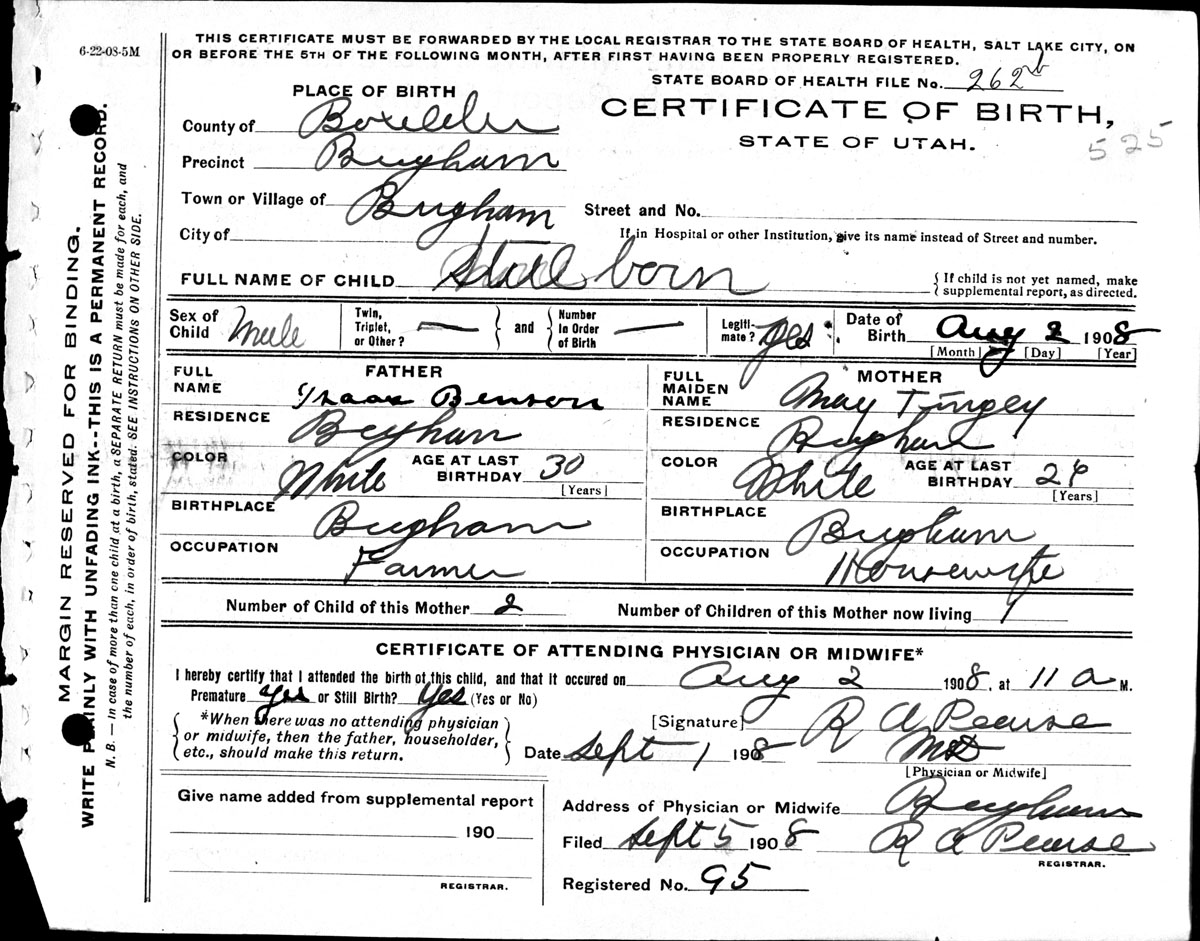 6-22-08-5M
THIS CERTIFICATE MUST BE FORWARDED BY THE LOCAL REGISTRAR TO THE STATE BOARD OF HEALTH, SALT LAKE CITY, ON
OR BEFORE THE 5TH OF THE FOLLOWING MONTH, AFTER FIRST HAVING BEEN PROPERLY REGISTERED.
STATE BOARD OF HEALTH FILE No. 262 b
PLACE OF BIRTH
CERTIFICATE OF BIRTH,
STATE OF UTAH.
525
County of Boxelder
Precinct Brigham
Town or Village of Brigham
Street and No.
City of
If in Hospital or other Institution, give its name instead of Street and number.
FULL NAME OF CHILD Still born
{If child is not yet named, make
supplemental report, as directed.
Sex of Child Male Twin, Triplet, or Other? — } and { Number In Order of Birth — Legitimate? Yes Date of Birth Aug 2 1908
[Month] [Day] [Year]
FATHER
FULL NAME Isaac Benson
RESIDENCE Brigham
COLOR White AGE AT LAST BIRTHDAY 30
[Years]
BIRTHPLACE Brigham
OCCUPATION Farmer
MOTHER
FULL MAIDEN NAME May Tingey
RESIDENCE Brigham
COLOR White AGE AT LAST BIRTHDAY
[Years]
BIRTHPLACE Brigham
OCCUPATION Housewife
Number of Child of this Mother 2 Number of Children of this Mother now living 1
CERTIFICATE OF ATTENDING PHYSICIAN OR MIDWIFE*
I hereby certify that I attended the birth of this child, and that it occured on Aug 2 1908, at 11 a M.
Premature Yes or Still Birth? Yes (Yes or No)
{*When there was no attending physician
or midwife, then the father, householder,
etc., should make this return.}
[Signature] R A Pearse
Date Sept 1 1908 MD
[Physician or Midwife]
Give name added from supplemental report
190
REGISTRAR.
Address of Physician or Midwife Brigham
Filed Sept 5 1908 R A Pearse
REGISTRAR.
Registered No. 95
MARGIN RESERVED FOR BINDING.
WRITE PLAINLY WITH UNFADING INK--THIS IS A PERMANENT RECORD.
N. B. — In case of more than one child at a birth, a SEPARATE RETURN must be made for each, and
the number of each, in order of birth, stated. SEE INSTRUCTIONS ON OTHER SIDE.